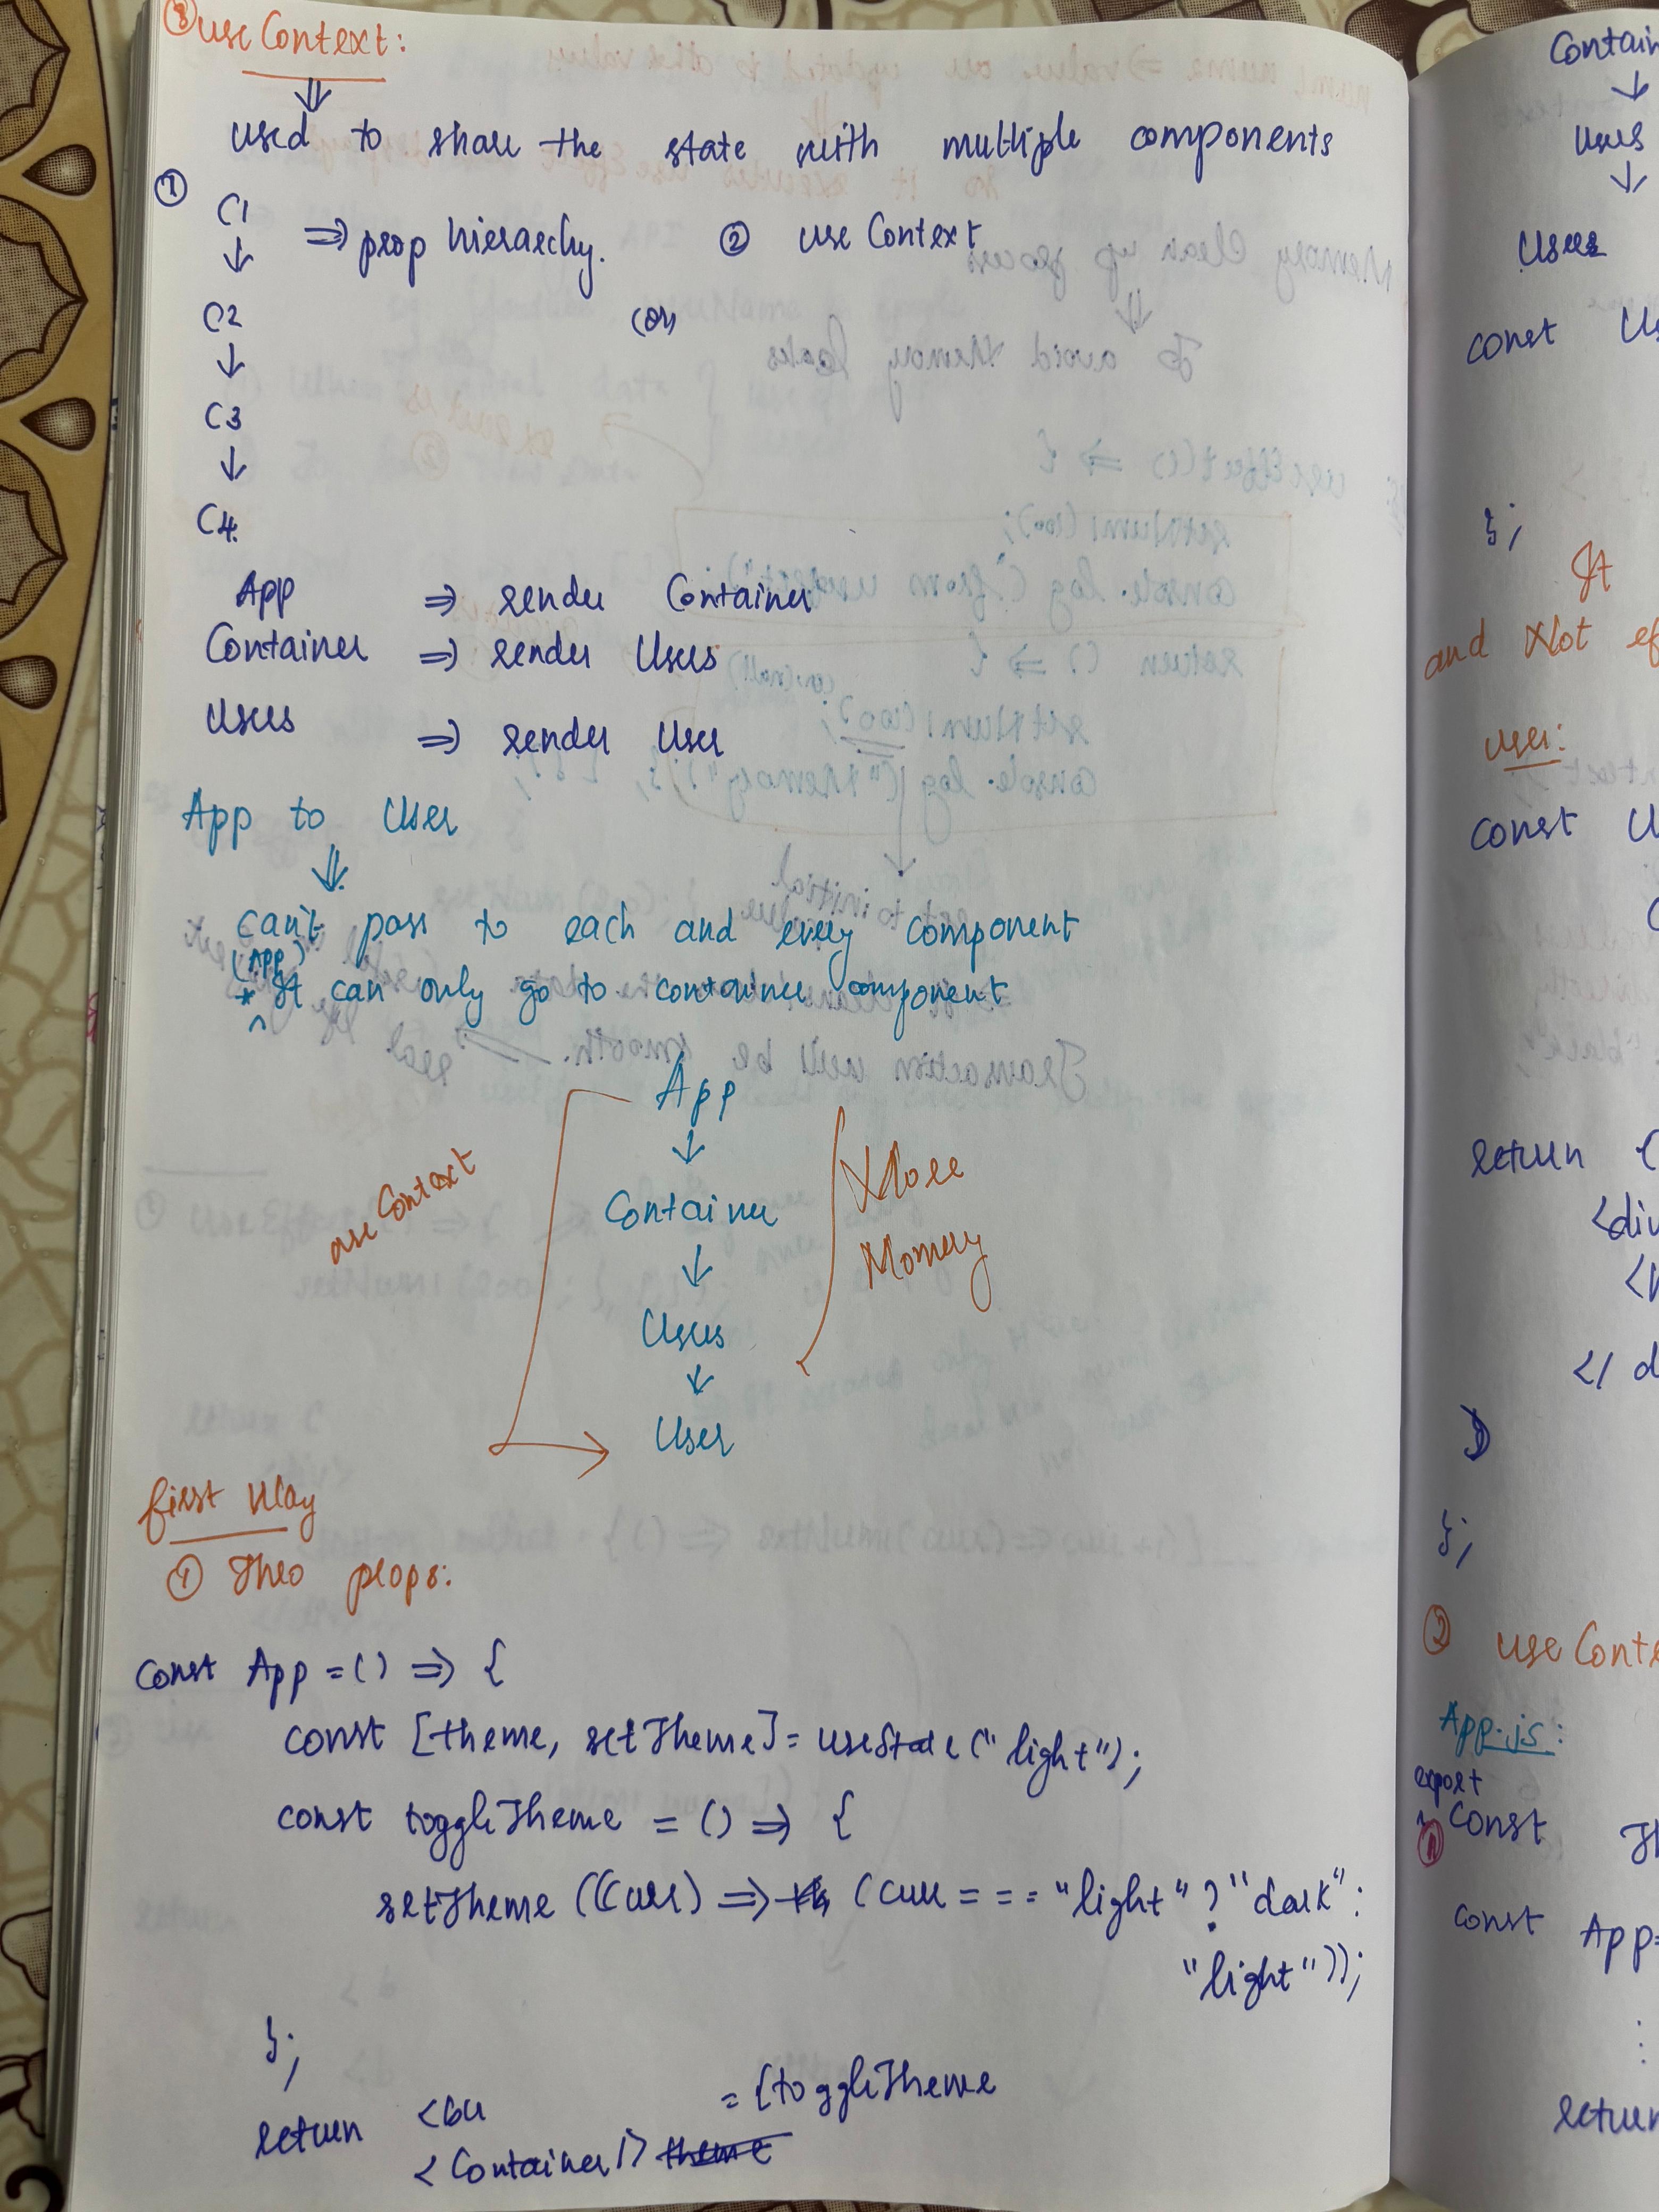 ③ useContext:
⇓
used to share the state with multiple components
①
C1 ⇒ prop hierarchy. ② useContext
↓
C2 (or)
↓
C3
↓
C4.
App ⇒ render Container
Container ⇒ render Users
Users ⇒ render User
App to User
⇓
can't pass to each and every component
(App)
* It can only go to container component
^
App
↓
Container
↓
Users
↓
User
useContext
More
Momery
first Way
① Thro props:
const App = () => {
const [theme, setTheme] = useState("light");
const toggleTheme = () => {
setTheme((curr) => (curr === "light" ? "dark" :
"light"));
};
return <bu = {toggleTheme
<Container/> theme
Contain
↓
Users
↓
User
const Us
};
It
and Not ef
user:
const U
C
return (
<div
</ d
)
};
② useConte
App.js:
export
① const Th
const App=
:
return